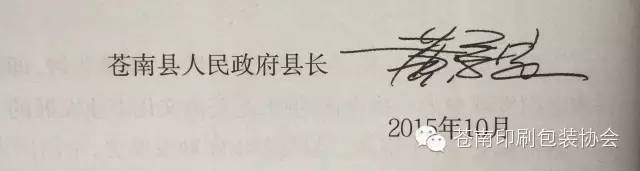 苍南县人民政府县长 黄寿龙
2015年10月
苍南印刷包装协会